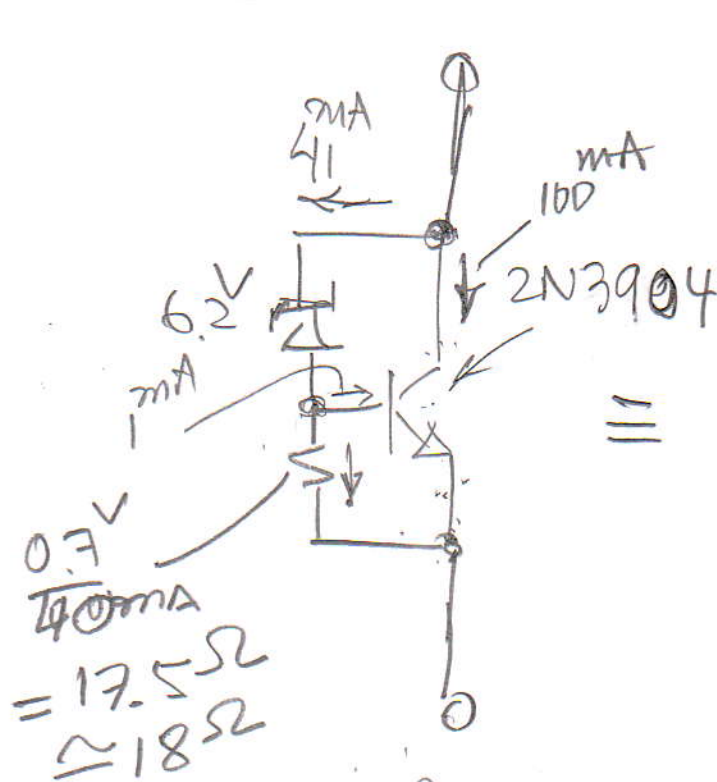 41 mA
100 mA
6.2 V
2N3904
1 mA
=
0.7 V
40 mA
= 17.5 Ω
≃ 18 Ω